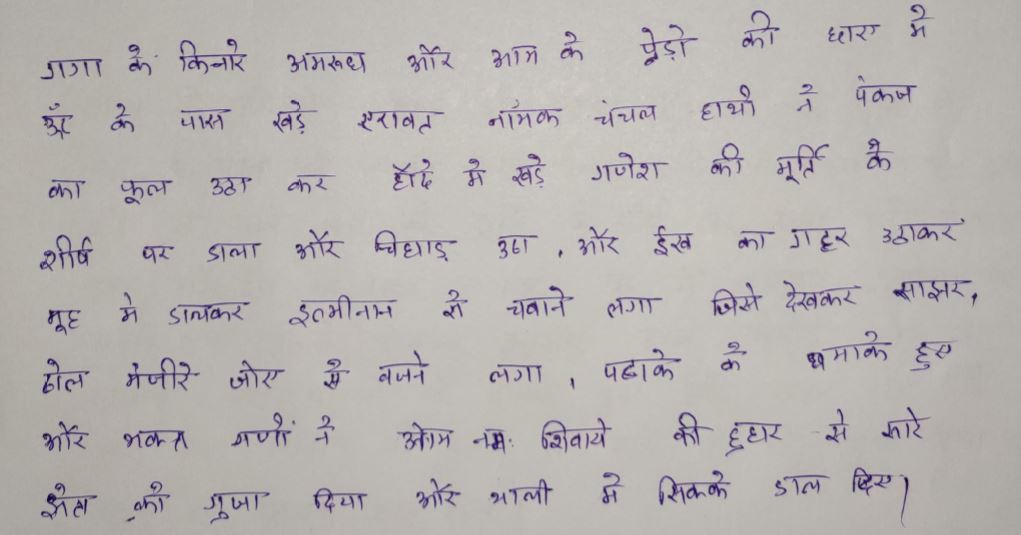 गगा के किनारे अमरूध और आम के पेड़ो की छाए मे
के पास खड़े एरावत नामक चंचल हाथी ने पंकज
का फूल उठा कर हौदे मे खड़े गणेश की मूर्ति के
शीर्ष पर डाला और चिघाड़ उठा , और ईख का गट्टर उठाकर
मूह मे डालकर इत्मीनान से चवाने लगा जिसे देखकर साझर,
ढोल मंजीरे जोर से वजने लगा , पटाके के धमाके हुए
और भक्त गणों ने ओम नमः शिवाये की दुहार से सारे
को गुजा दिया और थाली मे सिकके डाल दिए।